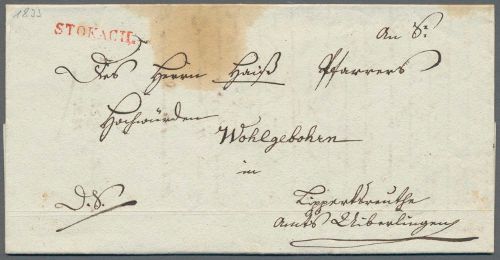 1833
STOKACH.
An Sr
Des Herrn Haiß Pfarrers
Hochwürden
Wohlgebohrn
in
D. S.
Lippertsreuthe
Amts Uiberlingen